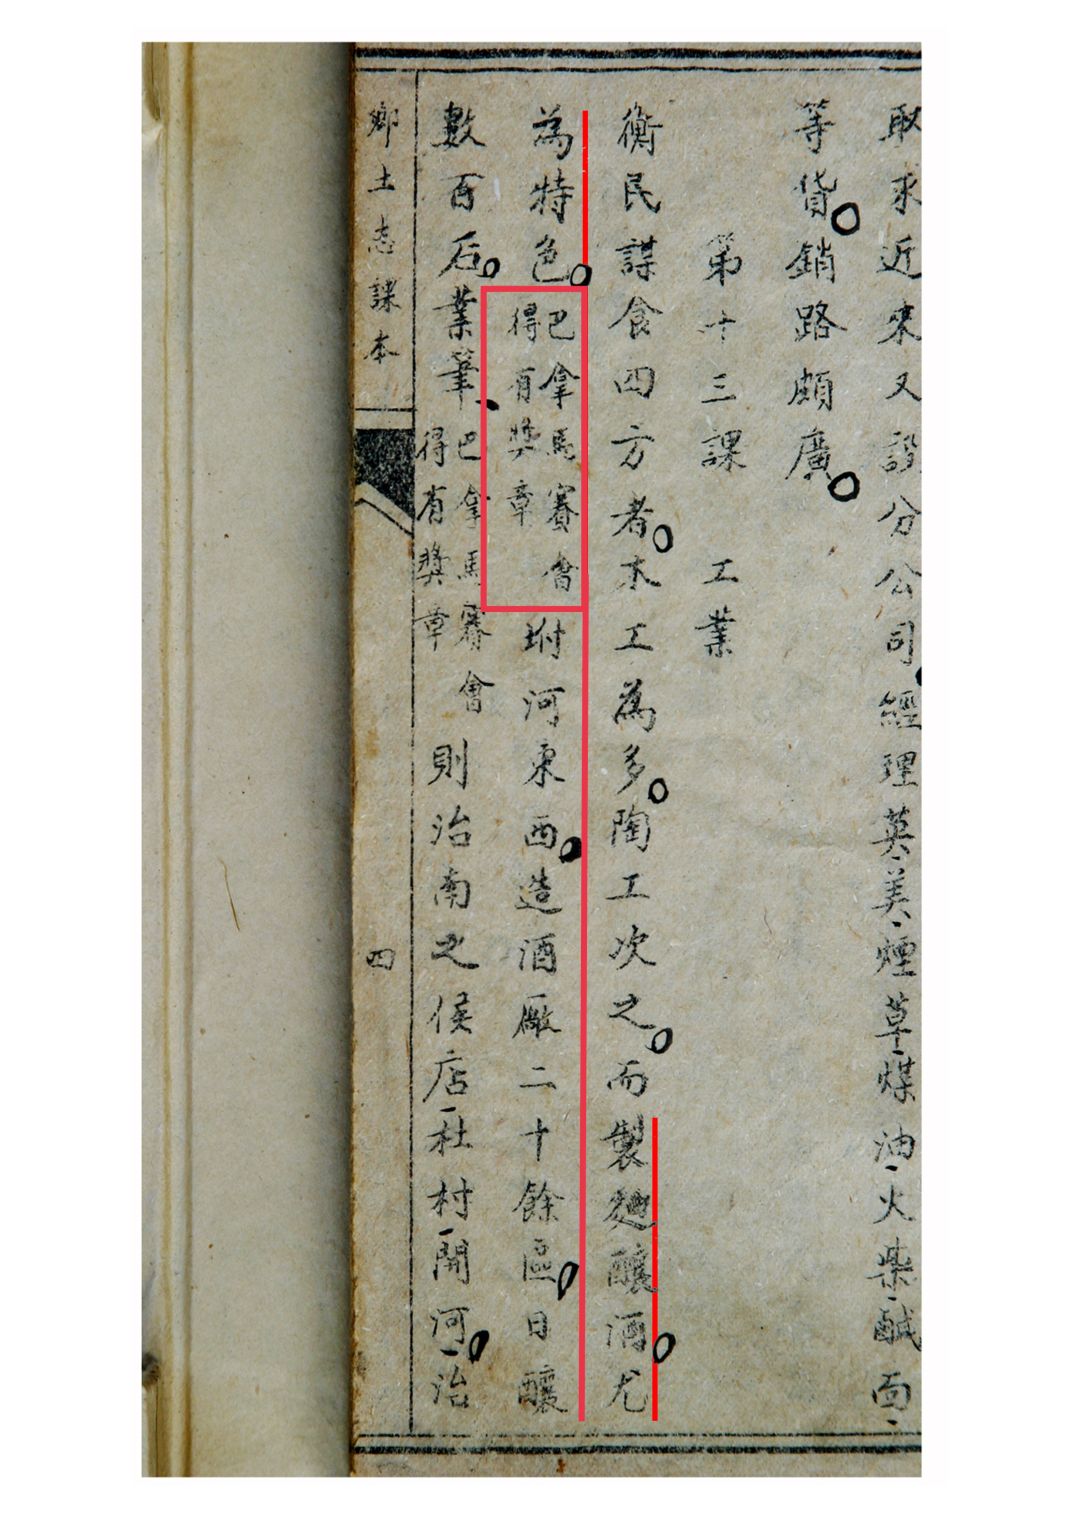 取求近來又設分公司經理英美煙草煤油火柴鹹面
等貨銷路頗廣
第十三課 工業
衡民謀食四方者木工為多陶工次之而製麯釀酒尤
為特色巴拿馬賽會得有獎章坿河東西造酒厰二十餘區日釀
數百石業筆巴拿馬賽會得有獎章則治南之侯店社村開河治
鄉土志課本
四